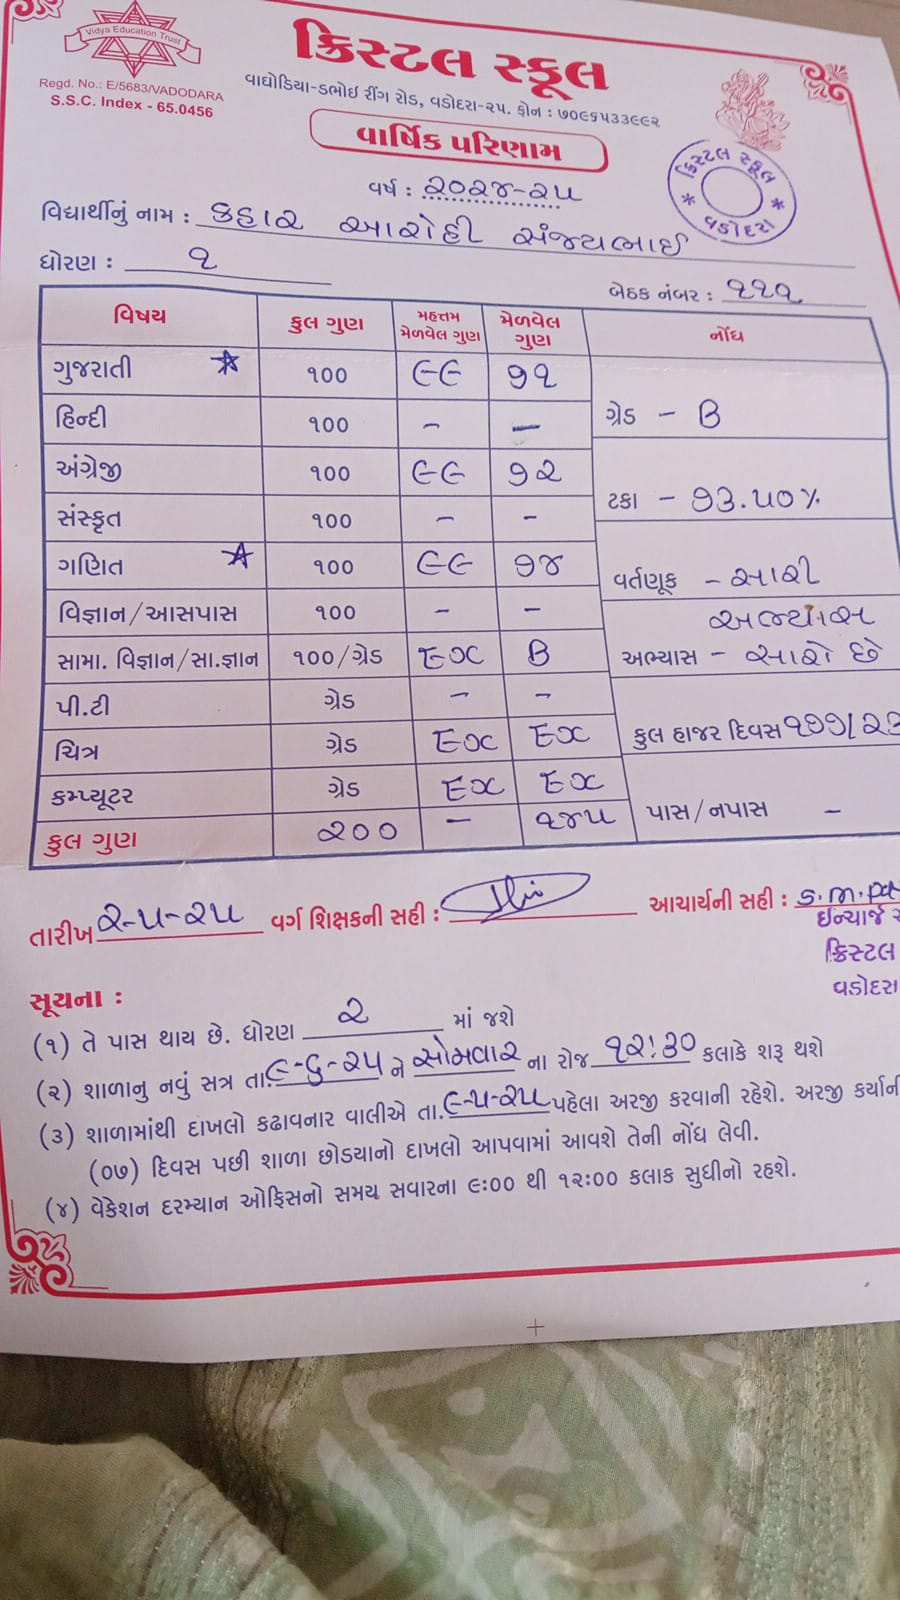 Vidya Education Trust
Regd. No.: E/5683/VADODARA
S.S.C. Index - 65.0456
ક્રિસ્ટલ સ્કૂલ
વાઘોડિયા-ડભોઇ રીંગ રોડ, વડોદરા-૨૫. ફોન : ૭૦૯૬૫૩૩૯૯૨
વાર્ષિક પરિણામ
ક્રિસ્ટલ સ્કૂલ * વડોદરા *
વર્ષ : ૨૦૨૪-૨૫
વિદ્યાર્થીનું નામ : કહાર આરોહી સંજયભાઈ
ધોરણ : ૧
બેઠક નંબર : ૧૧૧
વિષય કુલ ગુણ મહત્તમ મેળવેલ ગુણ મેળવેલ ગુણ નોંધ
ગુજરાતી ☆ ૧૦૦ ૯૯ ૭૧
હિન્દી ૧૦૦ - -
ગ્રેડ - B
અંગ્રેજી ૧૦૦ ૯૯ ૭૨
સંસ્કૃત ૧૦૦ - -
ટકા - ૭૩.૫૦%
ગણિત ☆ ૧૦૦ ૯૯ ૭૪
વર્તણૂક - સારી
વિજ્ઞાન/આસપાસ ૧૦૦ - -
અભ્યાસ
સામા. વિજ્ઞાન/સા.જ્ઞાન ૧૦૦/ગ્રેડ EX B
અભ્યાસ - સારો છે
પી.ટી ગ્રેડ - -
ચિત્ર ગ્રેડ EX EX
કુલ હાજર દિવસ ૧૭૭/૨૩
કમ્પ્યૂટર ગ્રેડ EX EX
કુલ ગુણ ૨૦૦ - ૧૪૫
પાસ/નપાસ -
તારીખ ૨-૫-૨૫ વર્ગ શિક્ષકની સહી : આચાર્યની સહી : S.M.
ઈન્ચાર્જ
ક્રિસ્ટલ
વડોદરા
સૂચના :
(૧) તે પાસ થાય છે. ધોરણ ૨ માં જશે
(૨) શાળાનુ નવું સત્ર તા ૯-૬-૨૫ ને સોમવાર ના રોજ ૧૨:૩૦ કલાકે શરૂ થશે
(૩) શાળામાંથી દાખલો કઢાવનાર વાલીએ તા. ૯-૫-૨૫ પહેલા અરજી કરવાની રહેશે. અરજી કર્યાની
(૦૭) દિવસ પછી શાળા છોડયાનો દાખલો આપવામાં આવશે તેની નોંધ લેવી.
(૪) વેકેશન દરમ્યાન ઓફિસનો સમય સવારના ૯:૦૦ થી ૧૨:૦૦ કલાક સુધીનો રહશે.